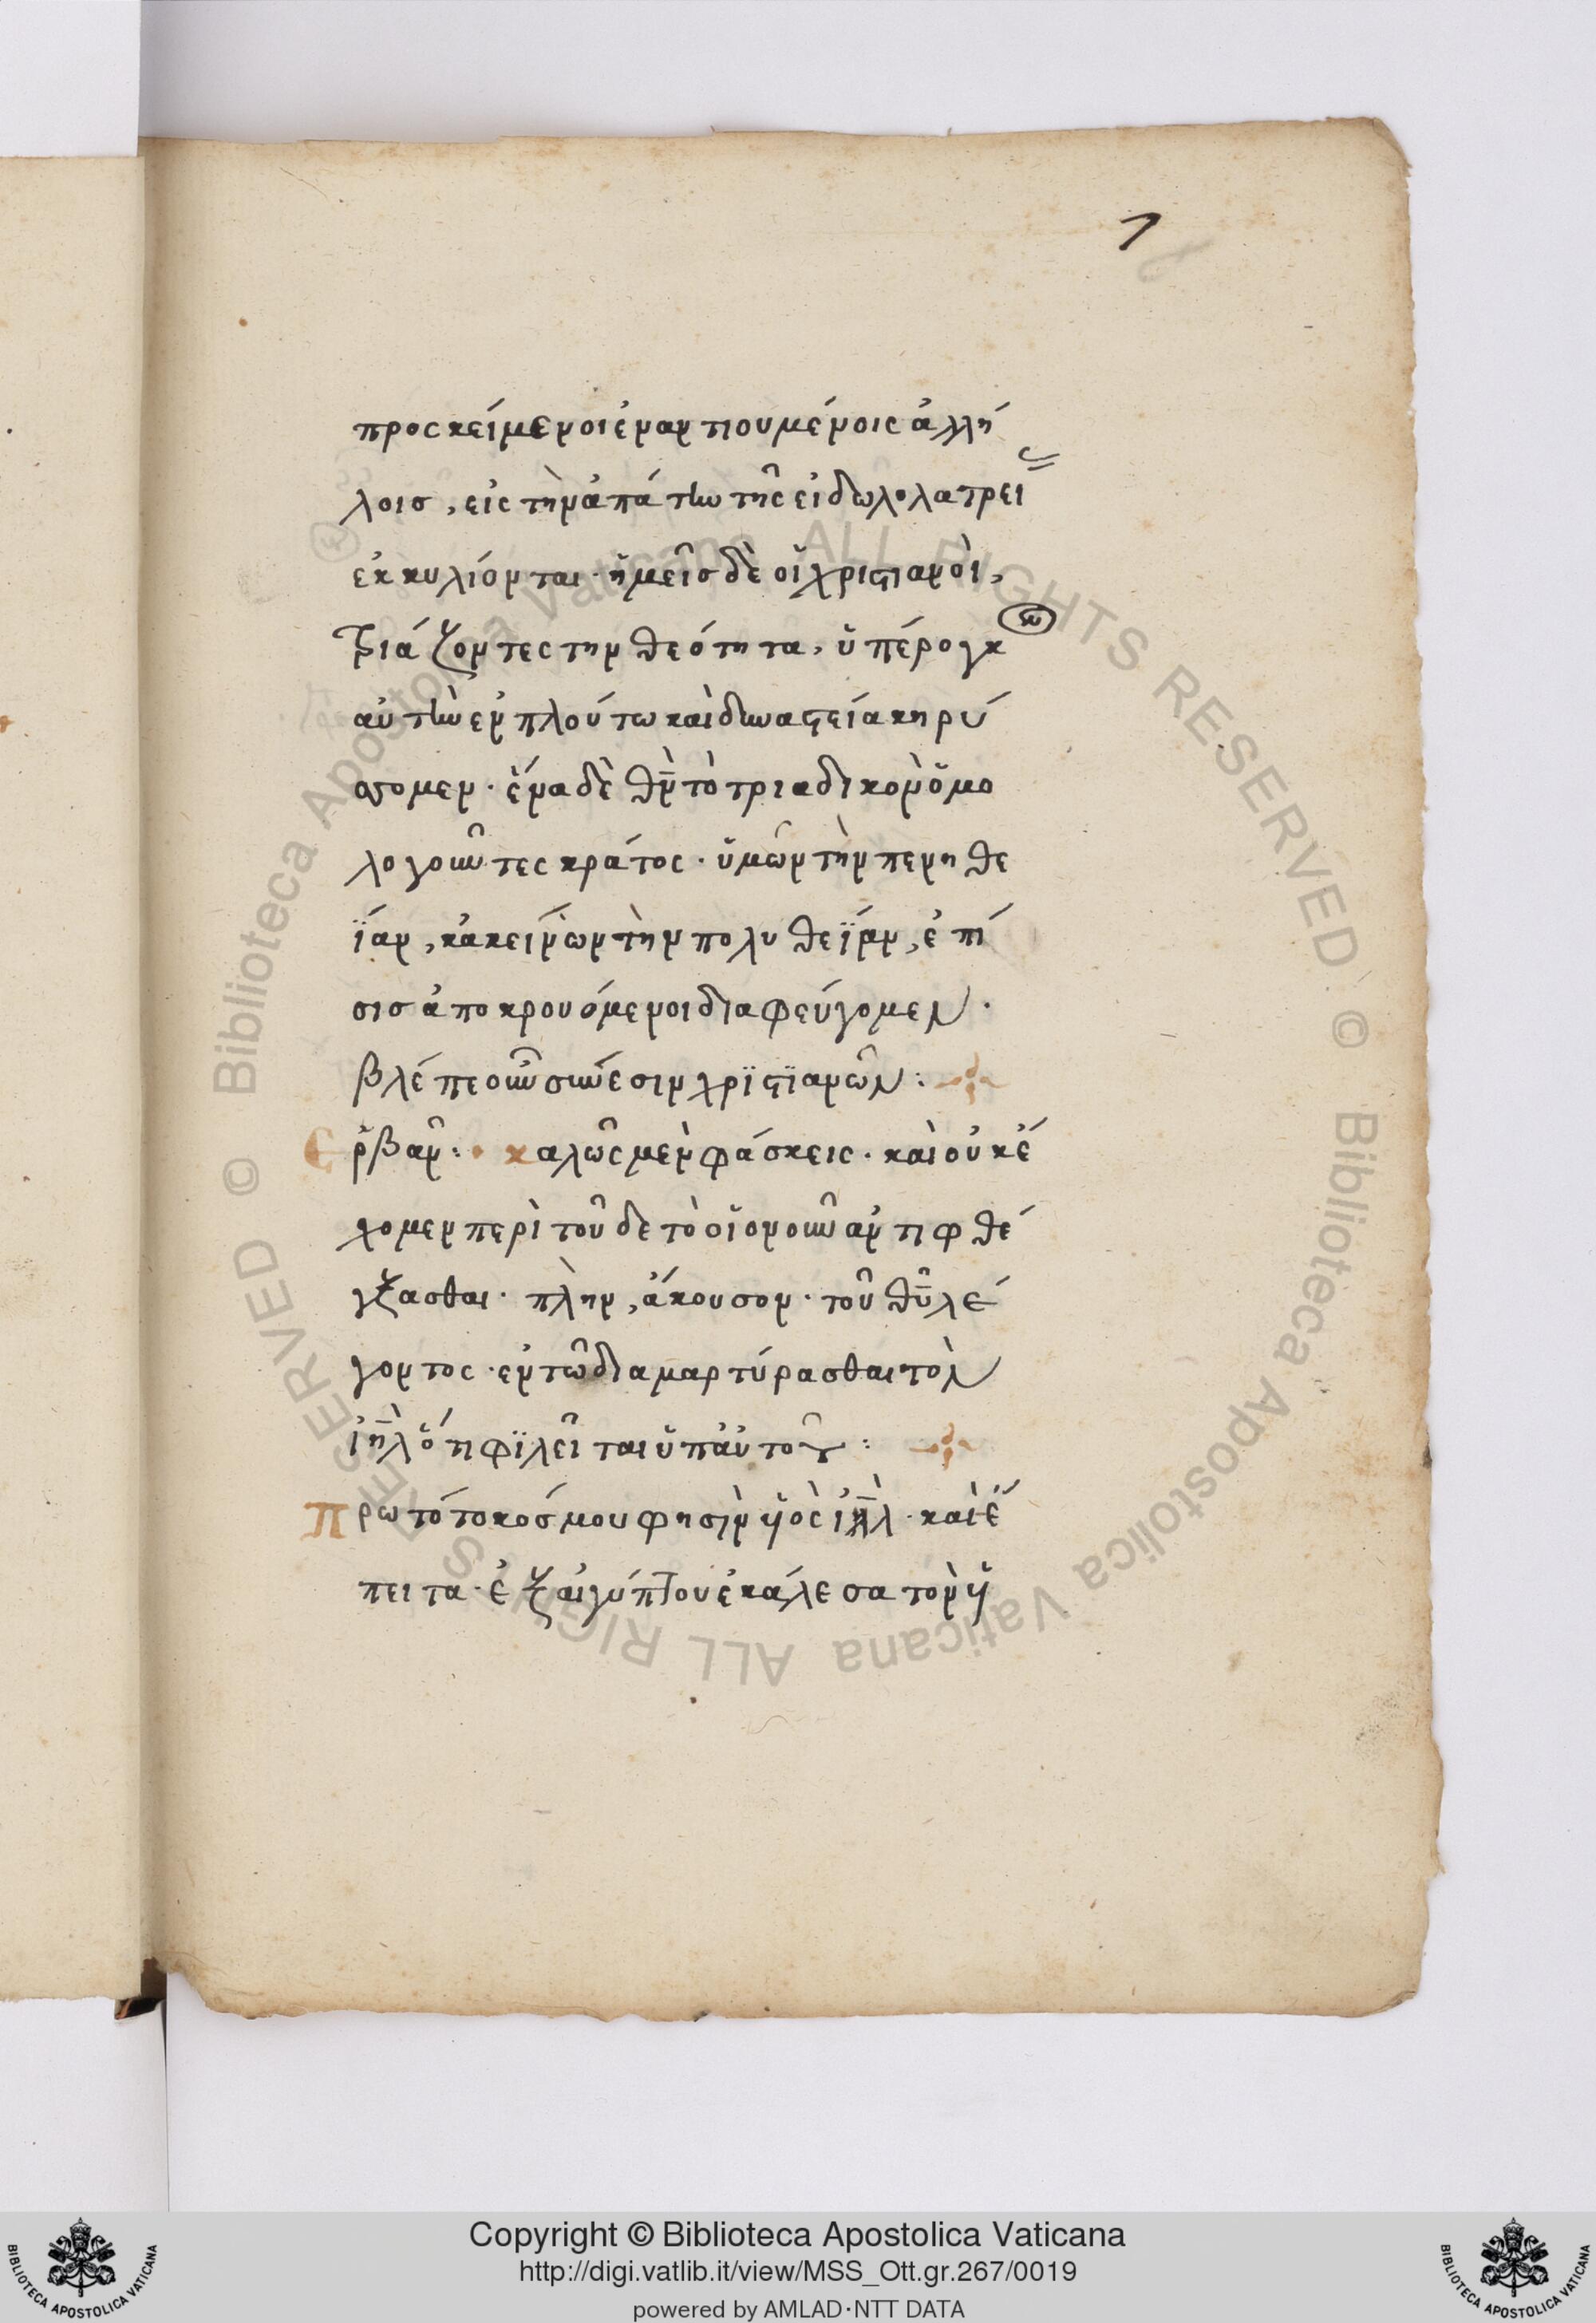 7
προσκείμενοι ἐναντιουμένοις ἀλλή
λοισ, εἰς τὴν ἀπάτην τῆς εἰδωλολατρεί
ἐκκυλίονται· ἡμεῖσ δὲ οἱ χριστιανοὶ,
τριάζοντες την θεότητα, ὑπέρογκ
αὐτὴν ἐν πλούτω καὶ δυναστεία κηρύ
ττομεν· ἕνα δὲ θν̅ τὸ τριαδικον ὁμο
λογοῦντες κράτος· ὑμῶν τὴν πενηθε
ΐαν, κἀκείνων τὴν πολυθεΐαν, ἐπί
σισ ἀποκρουόμενοι διαφεύγομεν·
βλέπε οὖν σύνεσιν χριστιανῶν:
Ερβαν: καλῶς μὲν φάσκεις· καὶ οὐκ ἔ
χομεν περὶ τοῦδε τὸ οἱονοῦν ἀντιφθέ
γξασθαι· πλὴν, ἄκουσον· τοῦ θυ̅ λέ
γοντος· ἐν τῶ διαμαρτύρασθαι τὸν
ἰηλ̅ ὅτι φιλεῖται ὑπ' αὐτοῦ:
Πρωτότοκόσ μου φησὶν ὑὸς ἰηλ̅· καὶ ἔ
πειτα· ἐξ αἰγύπτου ἐκάλεσα τὸν ὑ
Copyright © Biblioteca Apostolica Vaticana
http://digi.vatlib.it/view/MSS_Ott.gr.267/0019
powered by AMLAD·NTT DATA
BIBLIOTECA APOSTOLICA VATICANA
BIBLIOTECA APOSTOLICA VATICANA
© Biblioteca Apostolica Vaticana ALL RIGHTS RESERVED © Biblioteca Apostolica Vaticana ALL RIGHTS RESERVED